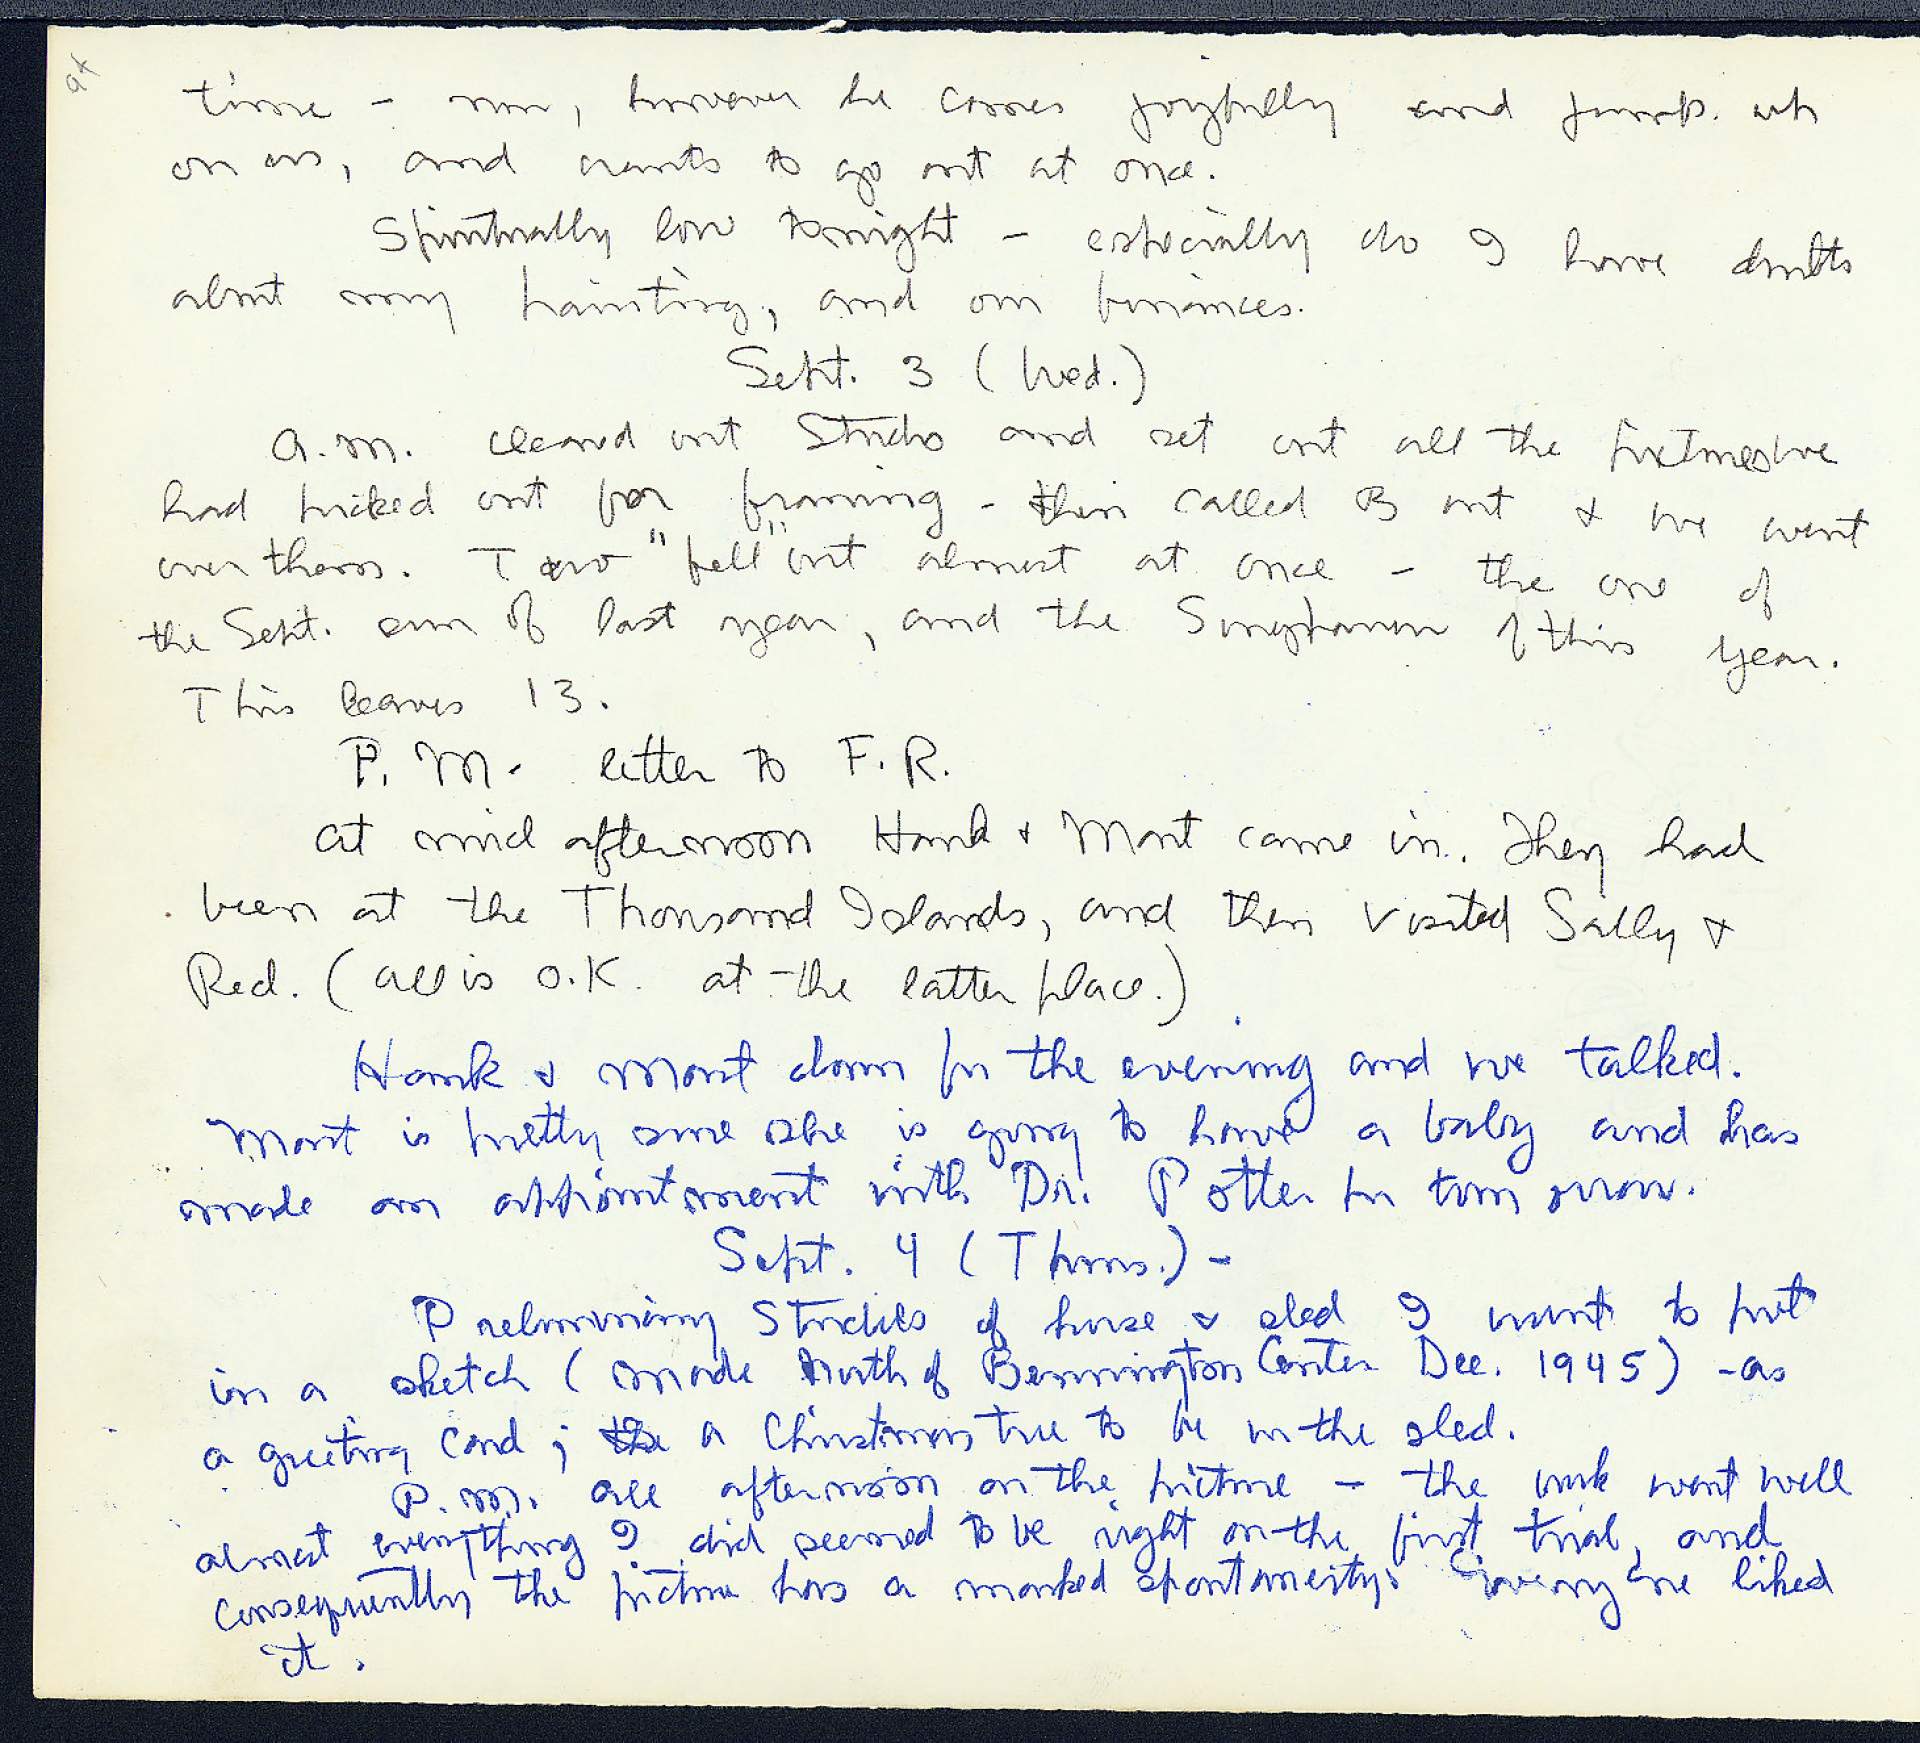 time - now, however he comes joyfully and jumps up
on us, and wants to go out at once.
Spiritually low tonight - especially do I have doubts
about my painting, and our finances.
Sept. 3 (Wed.)
A.M. cleaned out Studio and set out all the pictures we
had picked out for framing - then called B out & we went
over them. Two "fell" out almost at once - the one of
the Sept. sun of last year, and the of this year.
This leaves 13.
P.M. letter to F.R.
At mid afternoon Hank & Mart came in. They had
been at the Thousand Islands, and then visited Sally &
Red. (All is O.K. at the latter place.)
Hank & Mart down for the evening and we talked.
Mart is pretty sure she is going to have a baby and has
made an appointment with Dr. Potter for tomorrow.
Sept. 4 (Thurs.) -
Preliminary Studies of horse & sled I want to put
in a sketch (made North of Bennington Center Dec. 1945) - as
a greeting card; the a Christmas tree to be in the sled.
P.M. All afternoon on the picture - the work went well
almost everything I did seemed to be right on the first trial, and
consequently the picture has a marked spontaneity. Everyone liked
it.